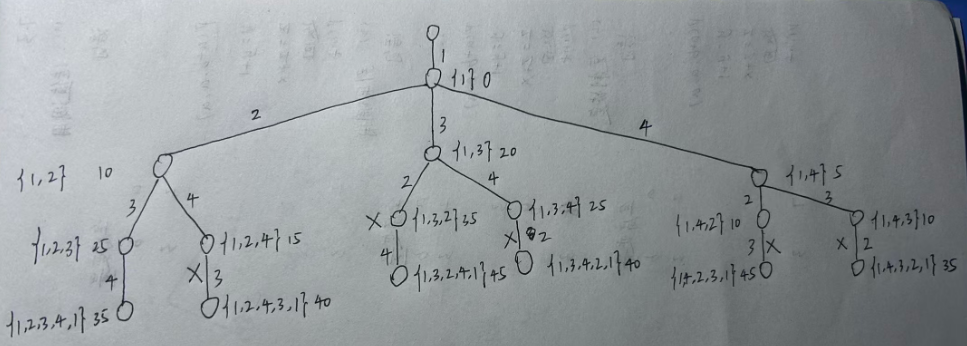 1
{1} 0
2 3 4
{1,2} 10
{1,3} 20
{1,4} 5
3 4 2 4 2 3
{1,2,3} 25
{1,2,4} 15
X {1,3,2} 35
{1,3,4} 25
{1,4,2} 10
{1,4,3} 10
4 X 3 4 X 2 3 X X 2
{1,2,3,4,1} 35
{1,2,4,3,1} 40
{1,3,2,4,1} 45
{1,3,4,2,1} 40
{1,4,2,3,1} 45
{1,4,3,2,1} 35